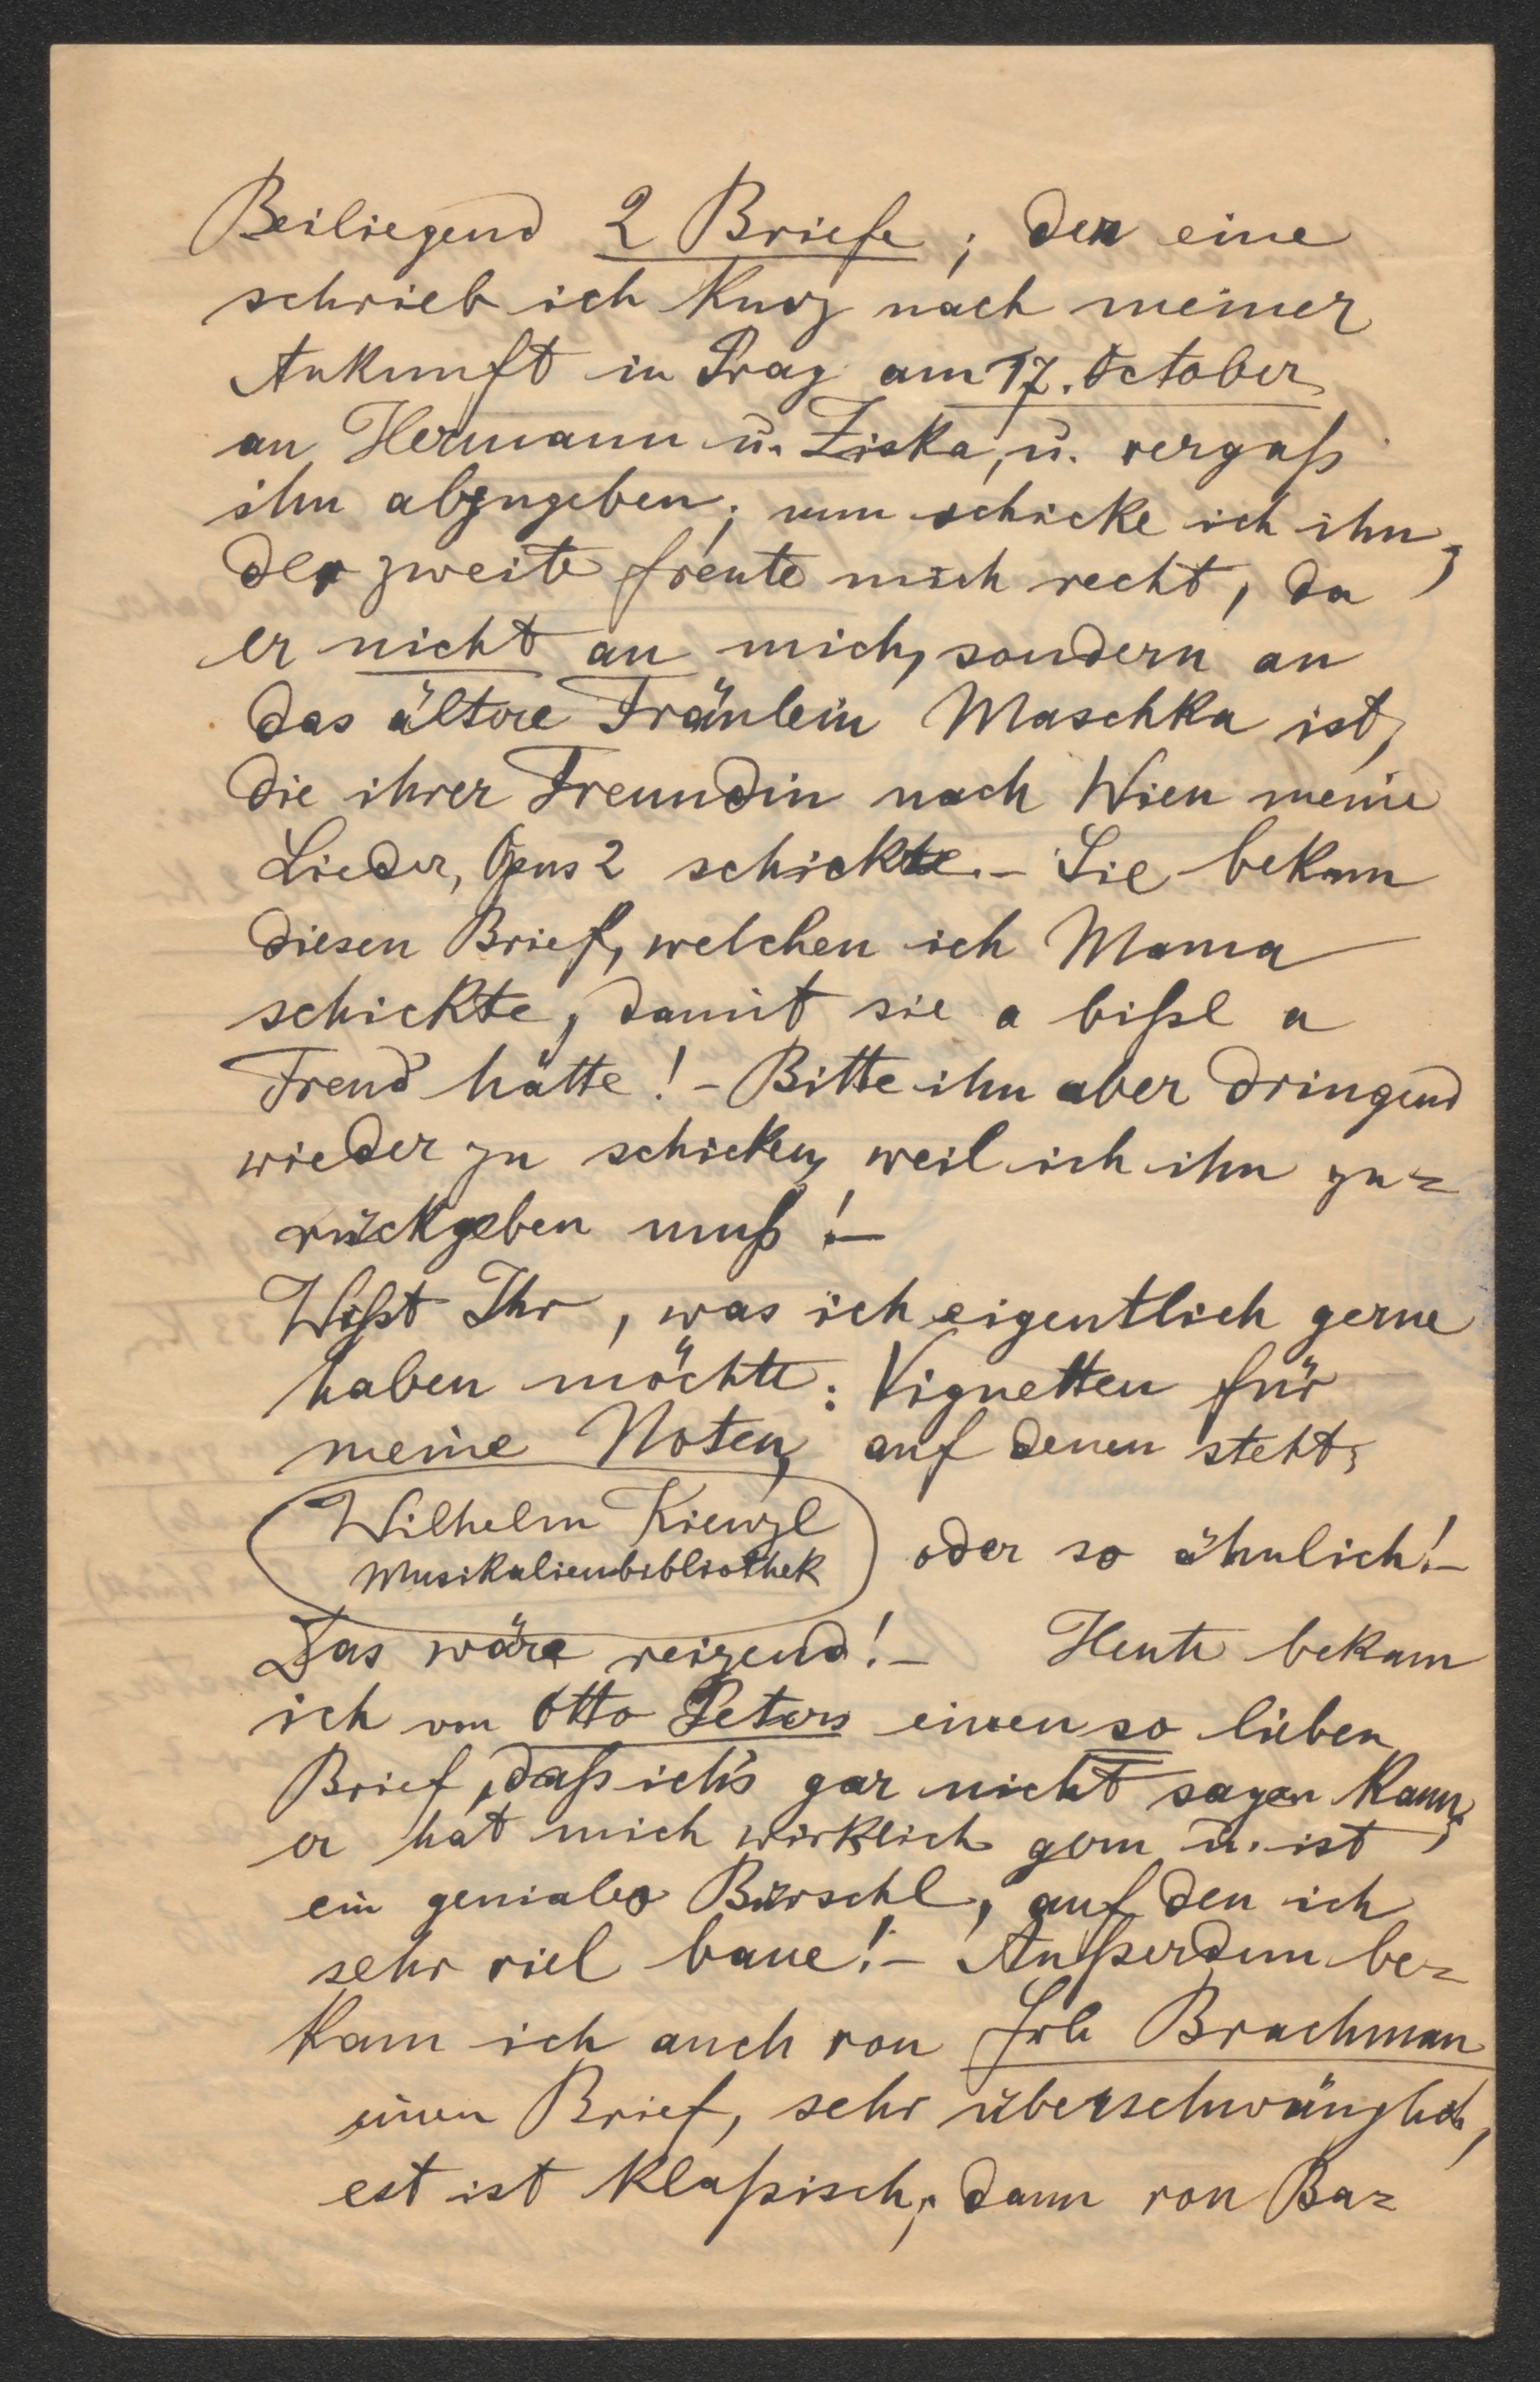 Beiliegend 2 Briefe; den eine
schrieb ich kurz nach meiner
Ankunft in Prag am 17. October
an Hermann u. Ziska, u. vergaß
ihn abzugeben; nun schicke ich ihn;
der zweite freute mich recht, da
er nicht an mich, sondern an
das ältere Fräulein Maschka ist,
die ihrer Freundin nach Wien meine
Lieder, Opus 2 schickte. – Sie bekam
diesen Brief, welchen ich Mama
schickte, damit sie a bißl a
Freud hätte! – Bitte ihn aber dringend
wieder zu schicken, weil ich ihn zu=
rückgeben muß! –
Wißt Ihr, was ich eigentlich gerne
haben möchte: Vignetten für
meine Noten, auf denen steht:
Wilhelm Kienzl
Musikalienbibliothek
oder so ähnlich! –
Das wäre reizend! – Heute bekam
ich von Otto Peters einen so lieben
Brief, daß ich's gar nicht sagen kann;
er hat mich wirklich gern u. ist
ein geniales Bürschl, auf den ich
sehr viel baue! – Außerdem be=
kam ich auch von Frl. Brachman
einen Brief, sehr überschwänglich,
est ist klaßisch; dann von Ba=